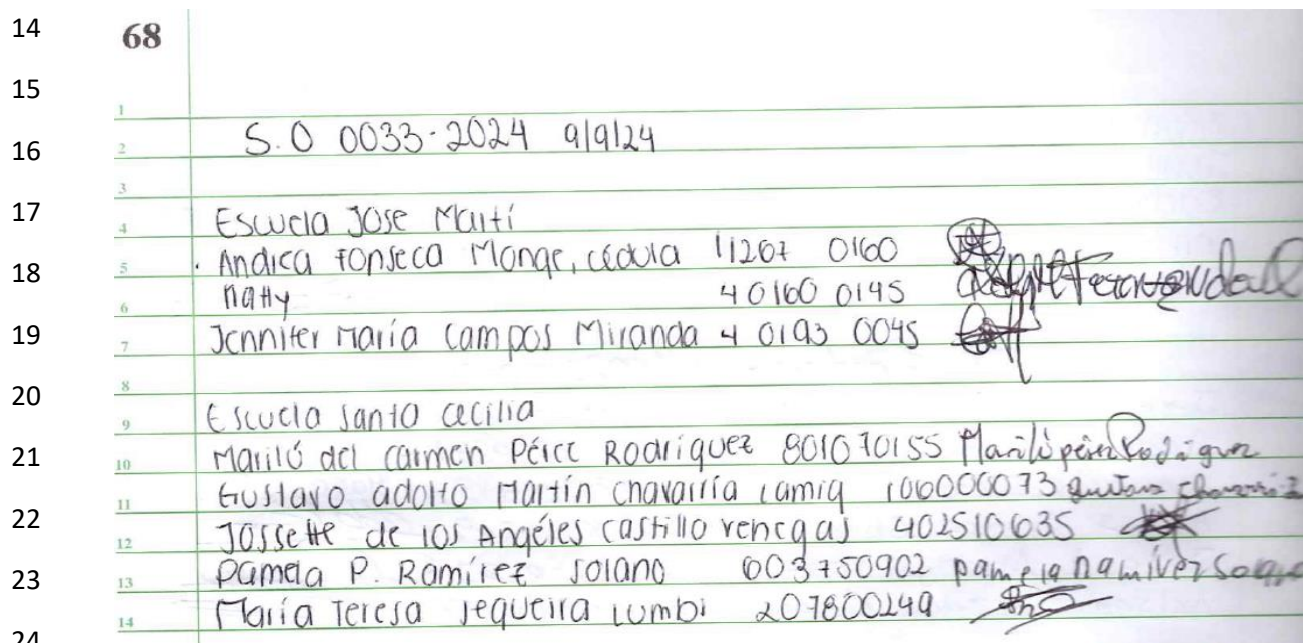 14
68
15
1
16
2 S.O 0033-2024 9/9/24
3
17
4 Escuela Jose Martí
5 Andrea Fonseca Monge, cédula 11267 0160
18
6 Natty 4 0160 0145
19
7 Jennifer María Campos Miranda 4 0193 0045
8
20
9 Escuela Santa Cecilia
21
10 Mariló del Carmen Pérez Rodríguez 801070155 Mariló pérez Rodríguez
11 Gustavo adolfo Martín chavarría 106000073 gustavo chavarría
22
12 Jossette de los Angéles castillo venegas 402510635
23
13 Pamela P. Ramírez Solano 603750902 pamela Ramírez Solano
14 María Teresa Sequeira Lumbi 207800249
24